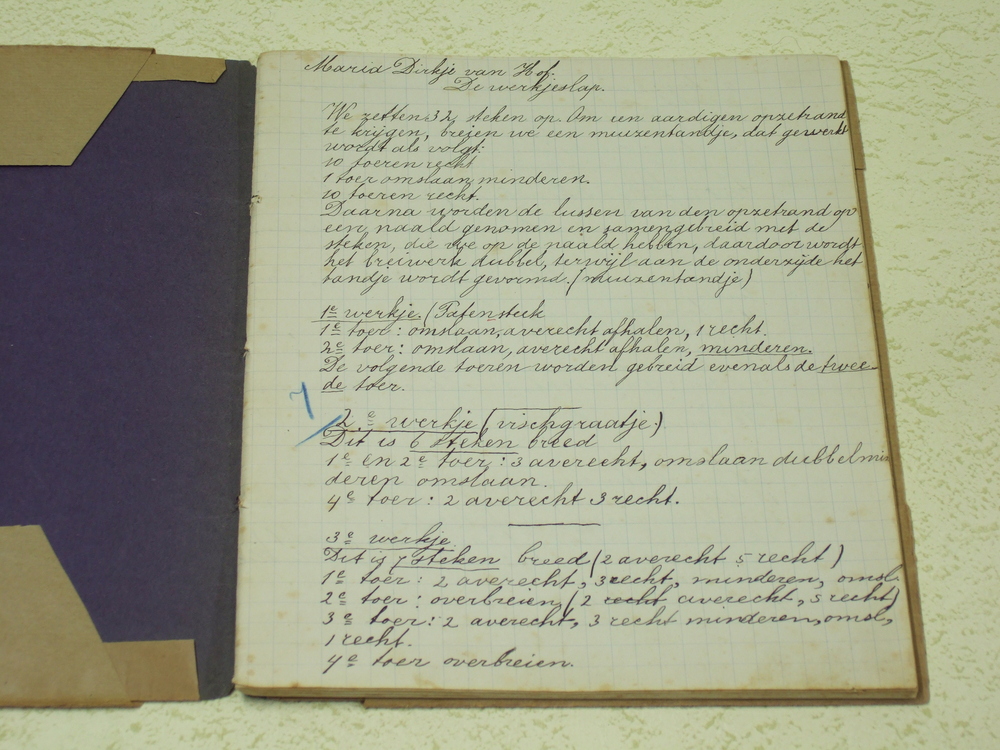 Maria Dirkje van Hof.
De werkjeslap.
We zetten 32 steken op. Om een aardigen opzetrand
te krijgen, breien we een muizentandje, dat gewerkt
wordt als volgt:
10 toeren recht
1 toer omslaan, minderen.
10 toeren recht.
Daarna worden de lussen van den opzetrand op
een naald genomen en samengebreid met de
steken, die we op de naald hebben, daardoor wordt
het breiwerk dubbel, terwijl aan de onderzijde het
tandje wordt gevormd. (muizentandje)
1e werkje. (Patentsteek
1e toer: omslaan, averecht afhalen, 1 recht.
2e toer: omslaan, averecht afhalen, minderen.
De volgende toeren worden gebreid evenals de twee-
de toer.
2e werkje (vischgraatje.)
Dit is 6 steken breed
1e en 2e toer: 3 averecht, omslaan dubbel min
deren omslaan.
4e toer: 2 averecht 3 recht.
3e werkje.
Dit is 7 steken breed (2 averecht 5 recht)
1e toer: 2 averecht, 3 recht, minderen, omsl.
2e toer: overbreien (2 recht averecht, 5 recht)
3e toer: 2 averecht, 3 recht minderen, omsl,
1 recht.
4e toer overbreien.